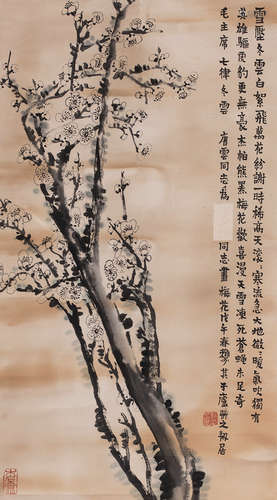 雪壓冬雲白絮飛萬花紛謝一時稀高天滚〻寒流急大地微〻暖氣吹獨有
英雄驅虎豹更無豪杰怕熊羆梅花歡喜漫天雪凍死蒼蠅未足奇
毛主席七律冬雲 唐雲同志為 同志畫梅花戊午春 其于 之 居